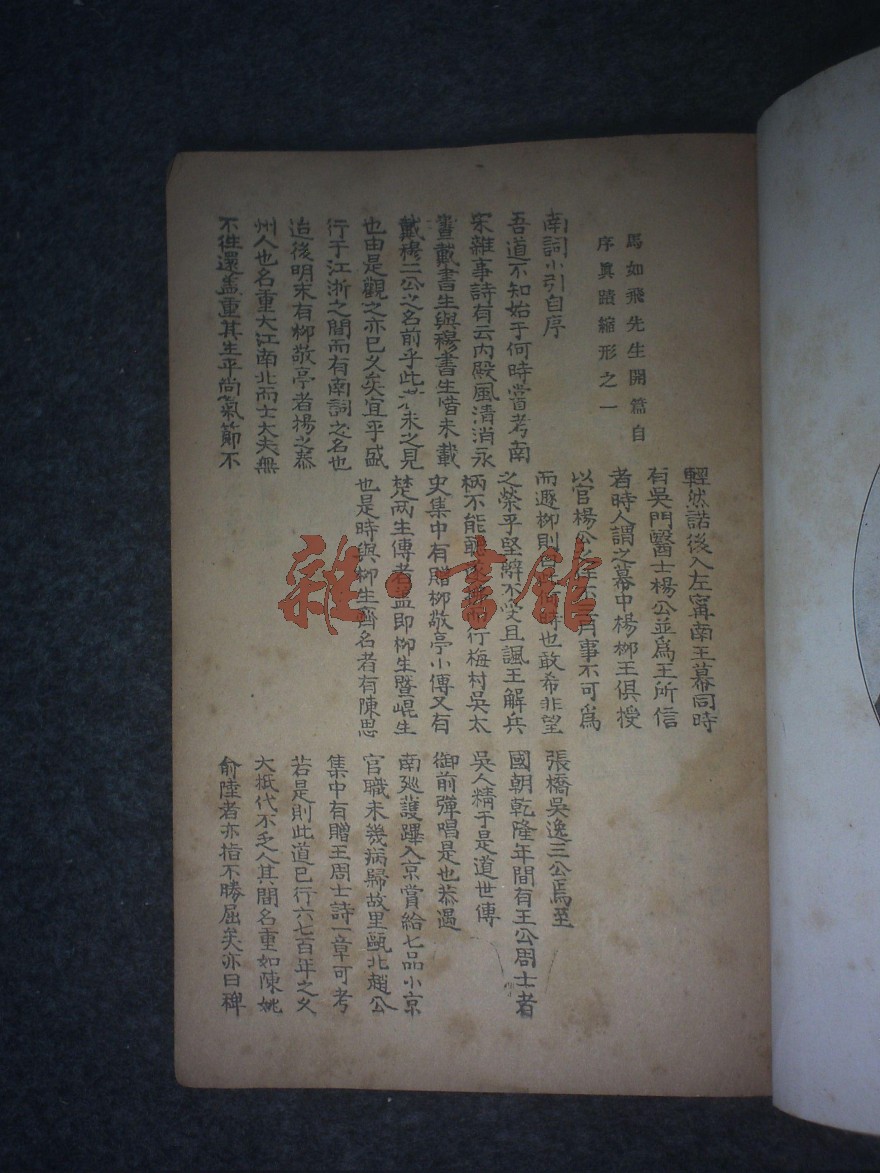 馬如飛先生開篇自
序眞蹟縮形之一
南詞小引自序
吾道不知始于何時嘗考南
宋雜事詩有云內殿風清消永
晝戴書生與穆書生惜未載
戴穆二公之名前乎此者未之見
也由是觀之亦已久矣宜乎盛
行于江浙之間而有南詞之名也
迨後明末有柳敬亭者揚之泰
州人也名重大江南北而士大夫無
不徃還盖重其生平尚氣節不
輕然諾後入左寧南王幕同時
有吳門醫士楊公並爲王所信
者時人謂之幕中楊柳王俱授
以官楊公 事不可爲
而遯柳則 時也敢希非望
之榮乎堅辭不受且諷王解兵
柄不能聽 行梅村吳太
史集中有贈柳敬亭小傳又有
楚兩生傳者盖即柳生暨崐生
也是時與柳生齊名者有陳思
張橋吳逸三公焉至
國朝乾隆年間有王公周士者
吳人精于是道世傳
御前彈唱是也恭遇
南廵護蹕入京賞給七品小京
官職未幾病歸故里甌北趙公
集中有贈王周士詩一章可考
若是則此道已行六七百年之久
大抵代不乏人其間名重如陳姚
俞陸者亦指不勝屈矣亦曰稗
雜·書館